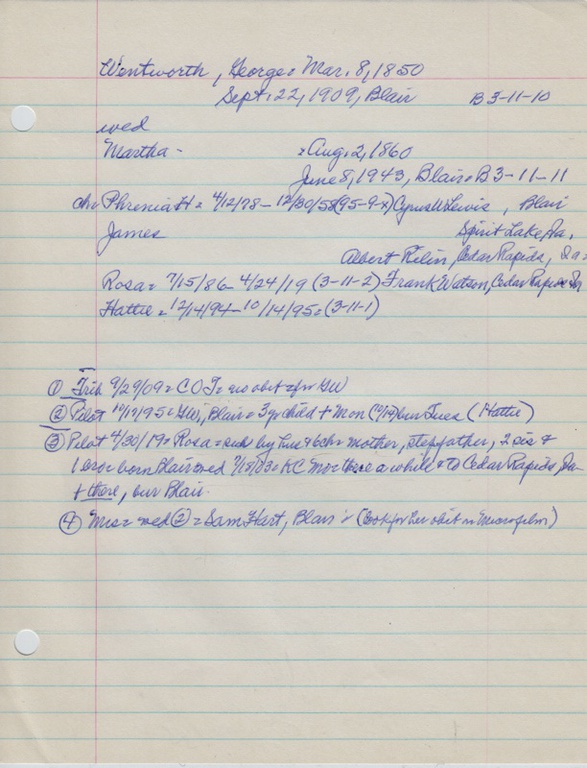 Wentworth, George = Mar. 8, 1850
Sept. 22, 1909, Blair B 3-11-10
wed
Martha - = Aug. 2, 1860
June 8, 1943, Blair = B 3-11-11
ch = Phrenia H = 4/12/78 - 12/30/58 (95-9-x) Cyrus Lewis, Blair
James Spirit Lake, Ia.
Albert Cedar Rapids, Ia =
Rosa = 7/15/86 - 4/24/19 (3-11-2) Frank Watson, Cedar Rapids Ia
Hattie = 12/14/94 - 10/14/95 = (3-11-1)
① Trib 9/29/09 = C of T = no obit for GW
② Pilot 10/17/95 = GW, Blair = 3 yr child + Mon (10/14) bur Tues (Hattie)
③ Pilot 4/30/19 = Rosa = sur by hus & 6 ch = mother, stepfather, 2 sis &
1 bro = born Blair wed = KC Mo = there a while & to Cedar Rapids, Ia
+ there, bur Blair.
④ Mrs = wed ② = Sam Hart, Blair = (look for her obit on microfilm)